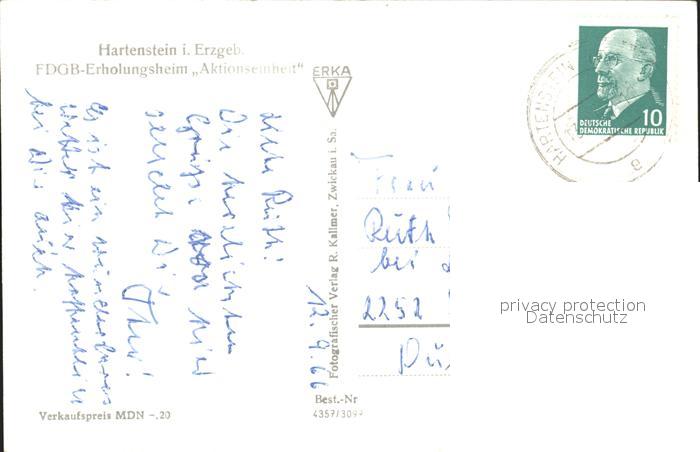 Hartenstein i. Erzgeb.
FDGB-Erholungsheim „Aktionseinheit"
ERKA
HARTENSTEIN
DEUTSCHE
DEMOKRATISCHE REPUBLIK
10
a
12.9.66
Liebe Ruth!
Die herzlichsten
Grüsse von hier
sendet Dir
Es ist ein wunderbares
Wetter hier hoffentlich
bei Dir auch.
Fotografischer Verlag R. Kallmer, Zwickau i. Sa.
Frau
Ruth
bei
2252
privacy protection
Datenschutz
Verkaufspreis MDN -.20
Best.-Nr
4357/309